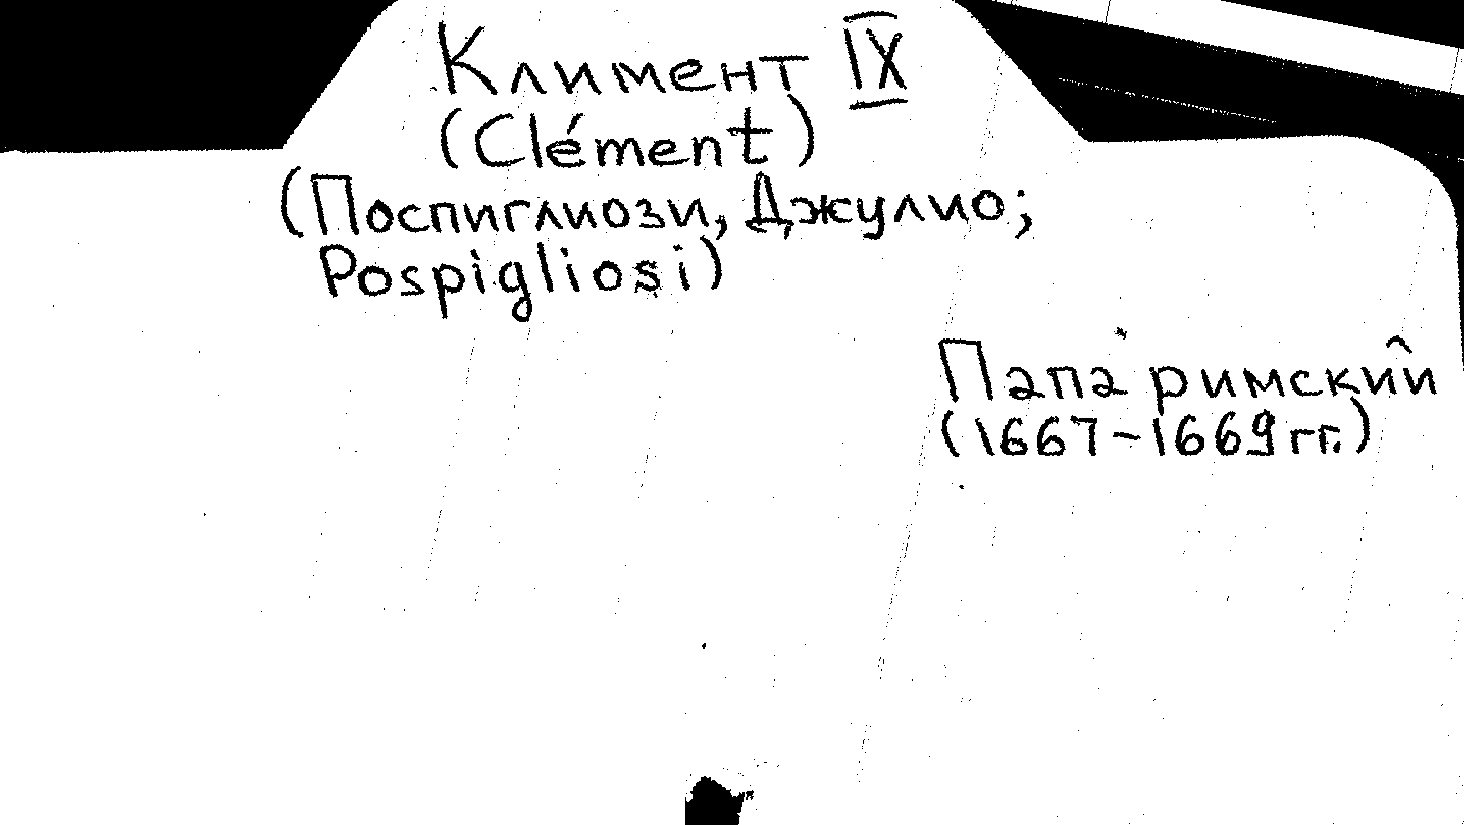 Климент IX
(Clément)
(Поспиглиози, Джулио;
Pospigliosi)
Папа римский
(1667-1669 гг.)